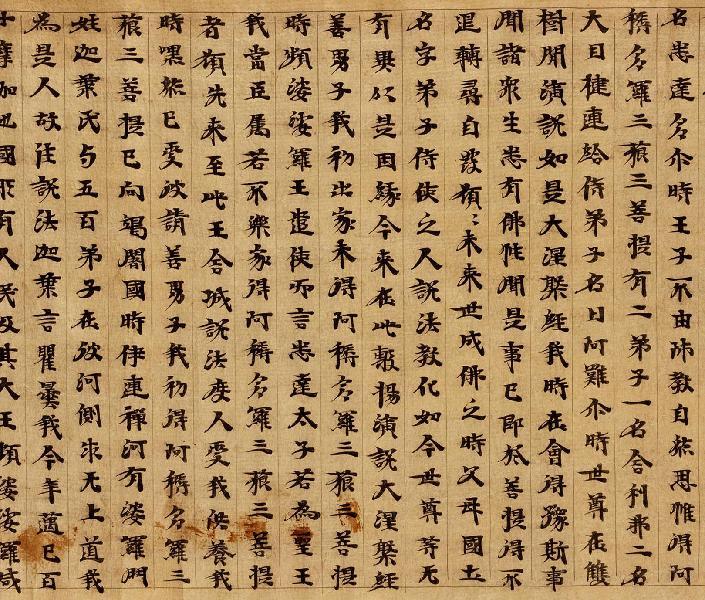 名悉達多尒時王子不由師教自然思惟得阿
耨多羅三藐三菩提有二弟子一名舍利弗二名
大目揵連給侍弟子名曰阿難尒時世尊在雙
樹間演說如是大涅槃經我時在會得豫斯事
聞諸眾生悉有佛性聞是事已即於菩提得不
退轉尋自發願〻未來世成佛之時父母國土
名字弟子侍使之人說法教化如今世尊等无
有異以是因緣今來在此敷揚演說大涅槃經
善男子我初出家未得阿耨多羅三藐三菩提
時頻婆娑羅王遣使而言悉達太子若為聖王
我當臣屬若不樂家得阿耨多羅三藐三菩提
者願先來至此王舍城說法度人受我供養我
時嘿然已受彼請善男子我初得阿耨多羅三
藐三菩提已向竭闍國時伊連禪河有婆羅門
姓迦葉氏与五百弟子在彼河側求无上道我
為是人故往說法迦葉言瞿曇我今年邁已百
十摩伽陀國所有人民及其大王頻婆娑羅咸